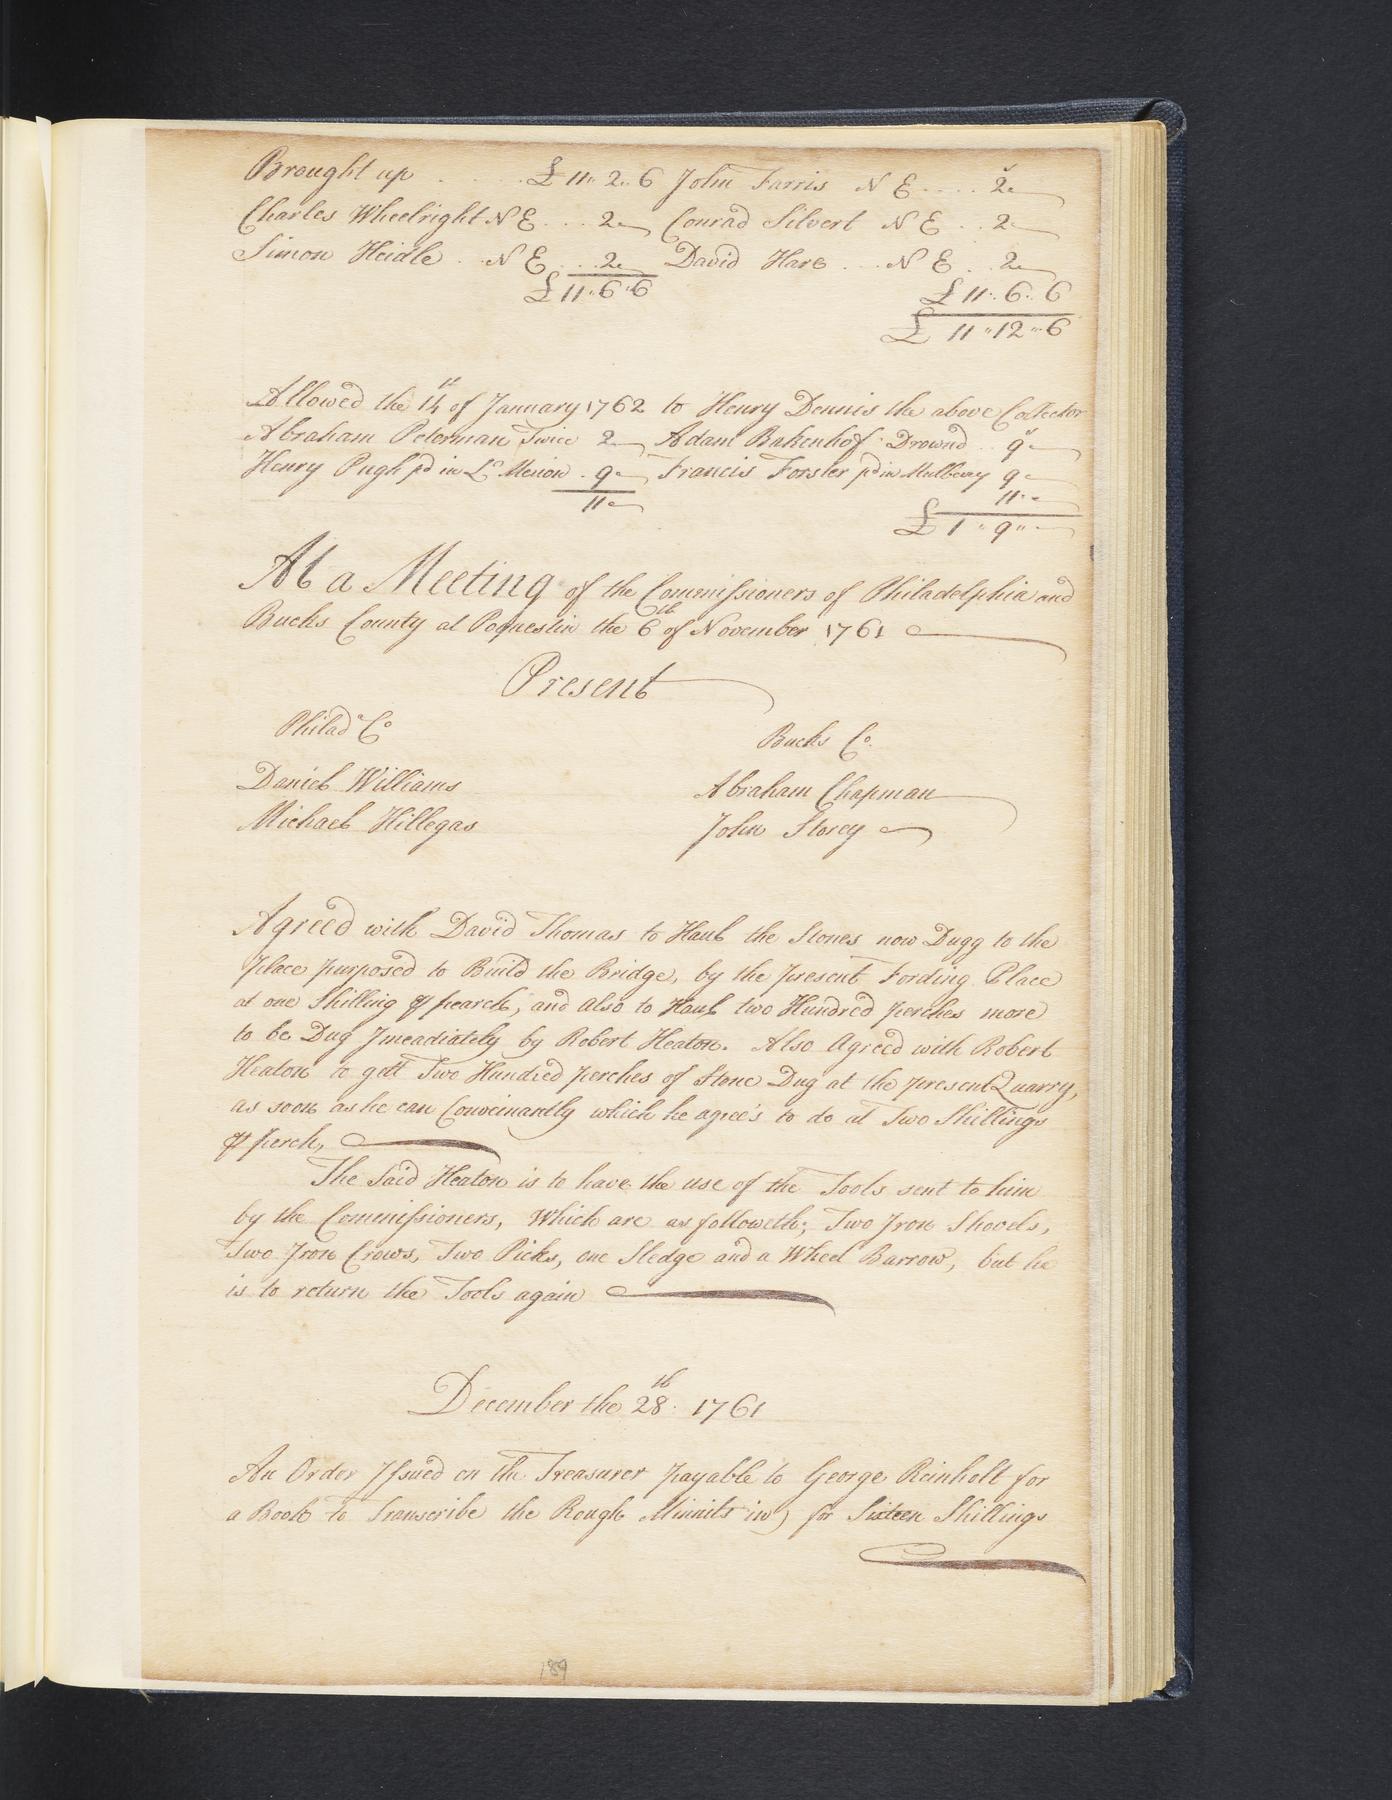 Brought up . . . £ 11 " 2 " 6 John Farris N E . . . . 2 s
Charles Wheelright N E . . . 2 Conrad Silvert N E . . 2
Simon Heidle . . N E . . . 2 David Hare . . . N E . 2
£ 11 " 6 " 6 £ 11 " 6 " 6
£ 11 " 12 " 6
Allowed the 14th of January 1762 to Henry Dennis the above Collector
Abraham Peterman Twice 2 Adam Bakenhof Drownd . . 9 s
Henry Pugh pd in Lo Merion . 9 Francis Forster pd in Mulberry 9
11 11
£ 1 " 9 "
At a Meeting of the Commissioners of Philadelphia and
Bucks County at Poqnestin the 6th of November 1761
Present
Philada Co Bucks Co.
Daniel Williams Abraham Chapman
Michael Hillegas John Storey
Agreed with David Thomas to Haul the Stones now Dugg to the
place purposed to Build the Bridge, by the present Fording Place
at one Shilling ⅌ pearch, and also to Haul two Hundred perches more
to be Dug Jmeadiately by Robert Heaton. Also Agreed with Robert
Heaton to gett Two Hundred perches of Stone Dug at the present Quarry,
as soon as he can Convinantly which he agree's to do at Two Shillings
⅌ perch,
The Said Heaton is to have the use of the Tools sent to him
by the Commissioners, Which are as followeth; Two Jron Shovels,
Two Jron Crows, Two Picks, one Sledge and a Wheel Barrow, but he
is to return the Tools again
December the 28th 1761
An Order Jssued on the Treasurer payable to George Reinholt for
a Book to Transcribe the Rough Minnits in) for Sixteen Shillings
189